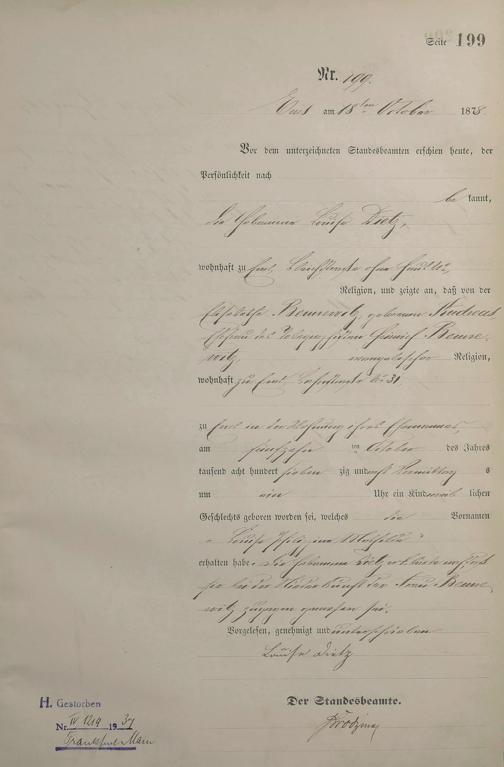 Seite 199
Nr. 199.
Ems am 18ten October 1878.
Vor dem unterzeichneten Standesbeamten erschien heute, der
Persönlichkeit nach
be kannt,
die Hebamme Louise Dietz,
wohnhaft zu Ems, ohne
Religion, und zeigte an, daß von der
Elisabethe Bennewitz, geborenen Andreas
Ehefrau des Heinrich Benne-
witz, evangelischer Religion,
wohnhaft zu Ems, No 31
zu Ems in der Wohnung ihres Ehemannes,
am fünfzehn ten October des Jahres
tausend acht hundert sieben zig und acht Vormittag s
um ein Uhr ein Kind weib lichen
Geschlechts geboren worden sei, welches die Vornamen
"Louise Mathilde"
erhalten habe. Die Hebamme Dietz erklärte
sie bei der Niederkunft der Frau Benne-
witz zugegen gewesen sei.
Vorgelesen, genehmigt und unterschrieben
Louise Dietz
Der Standesbeamte.
H. Gestorben
Nr. IV 1219 1937
Frankfurt-Main